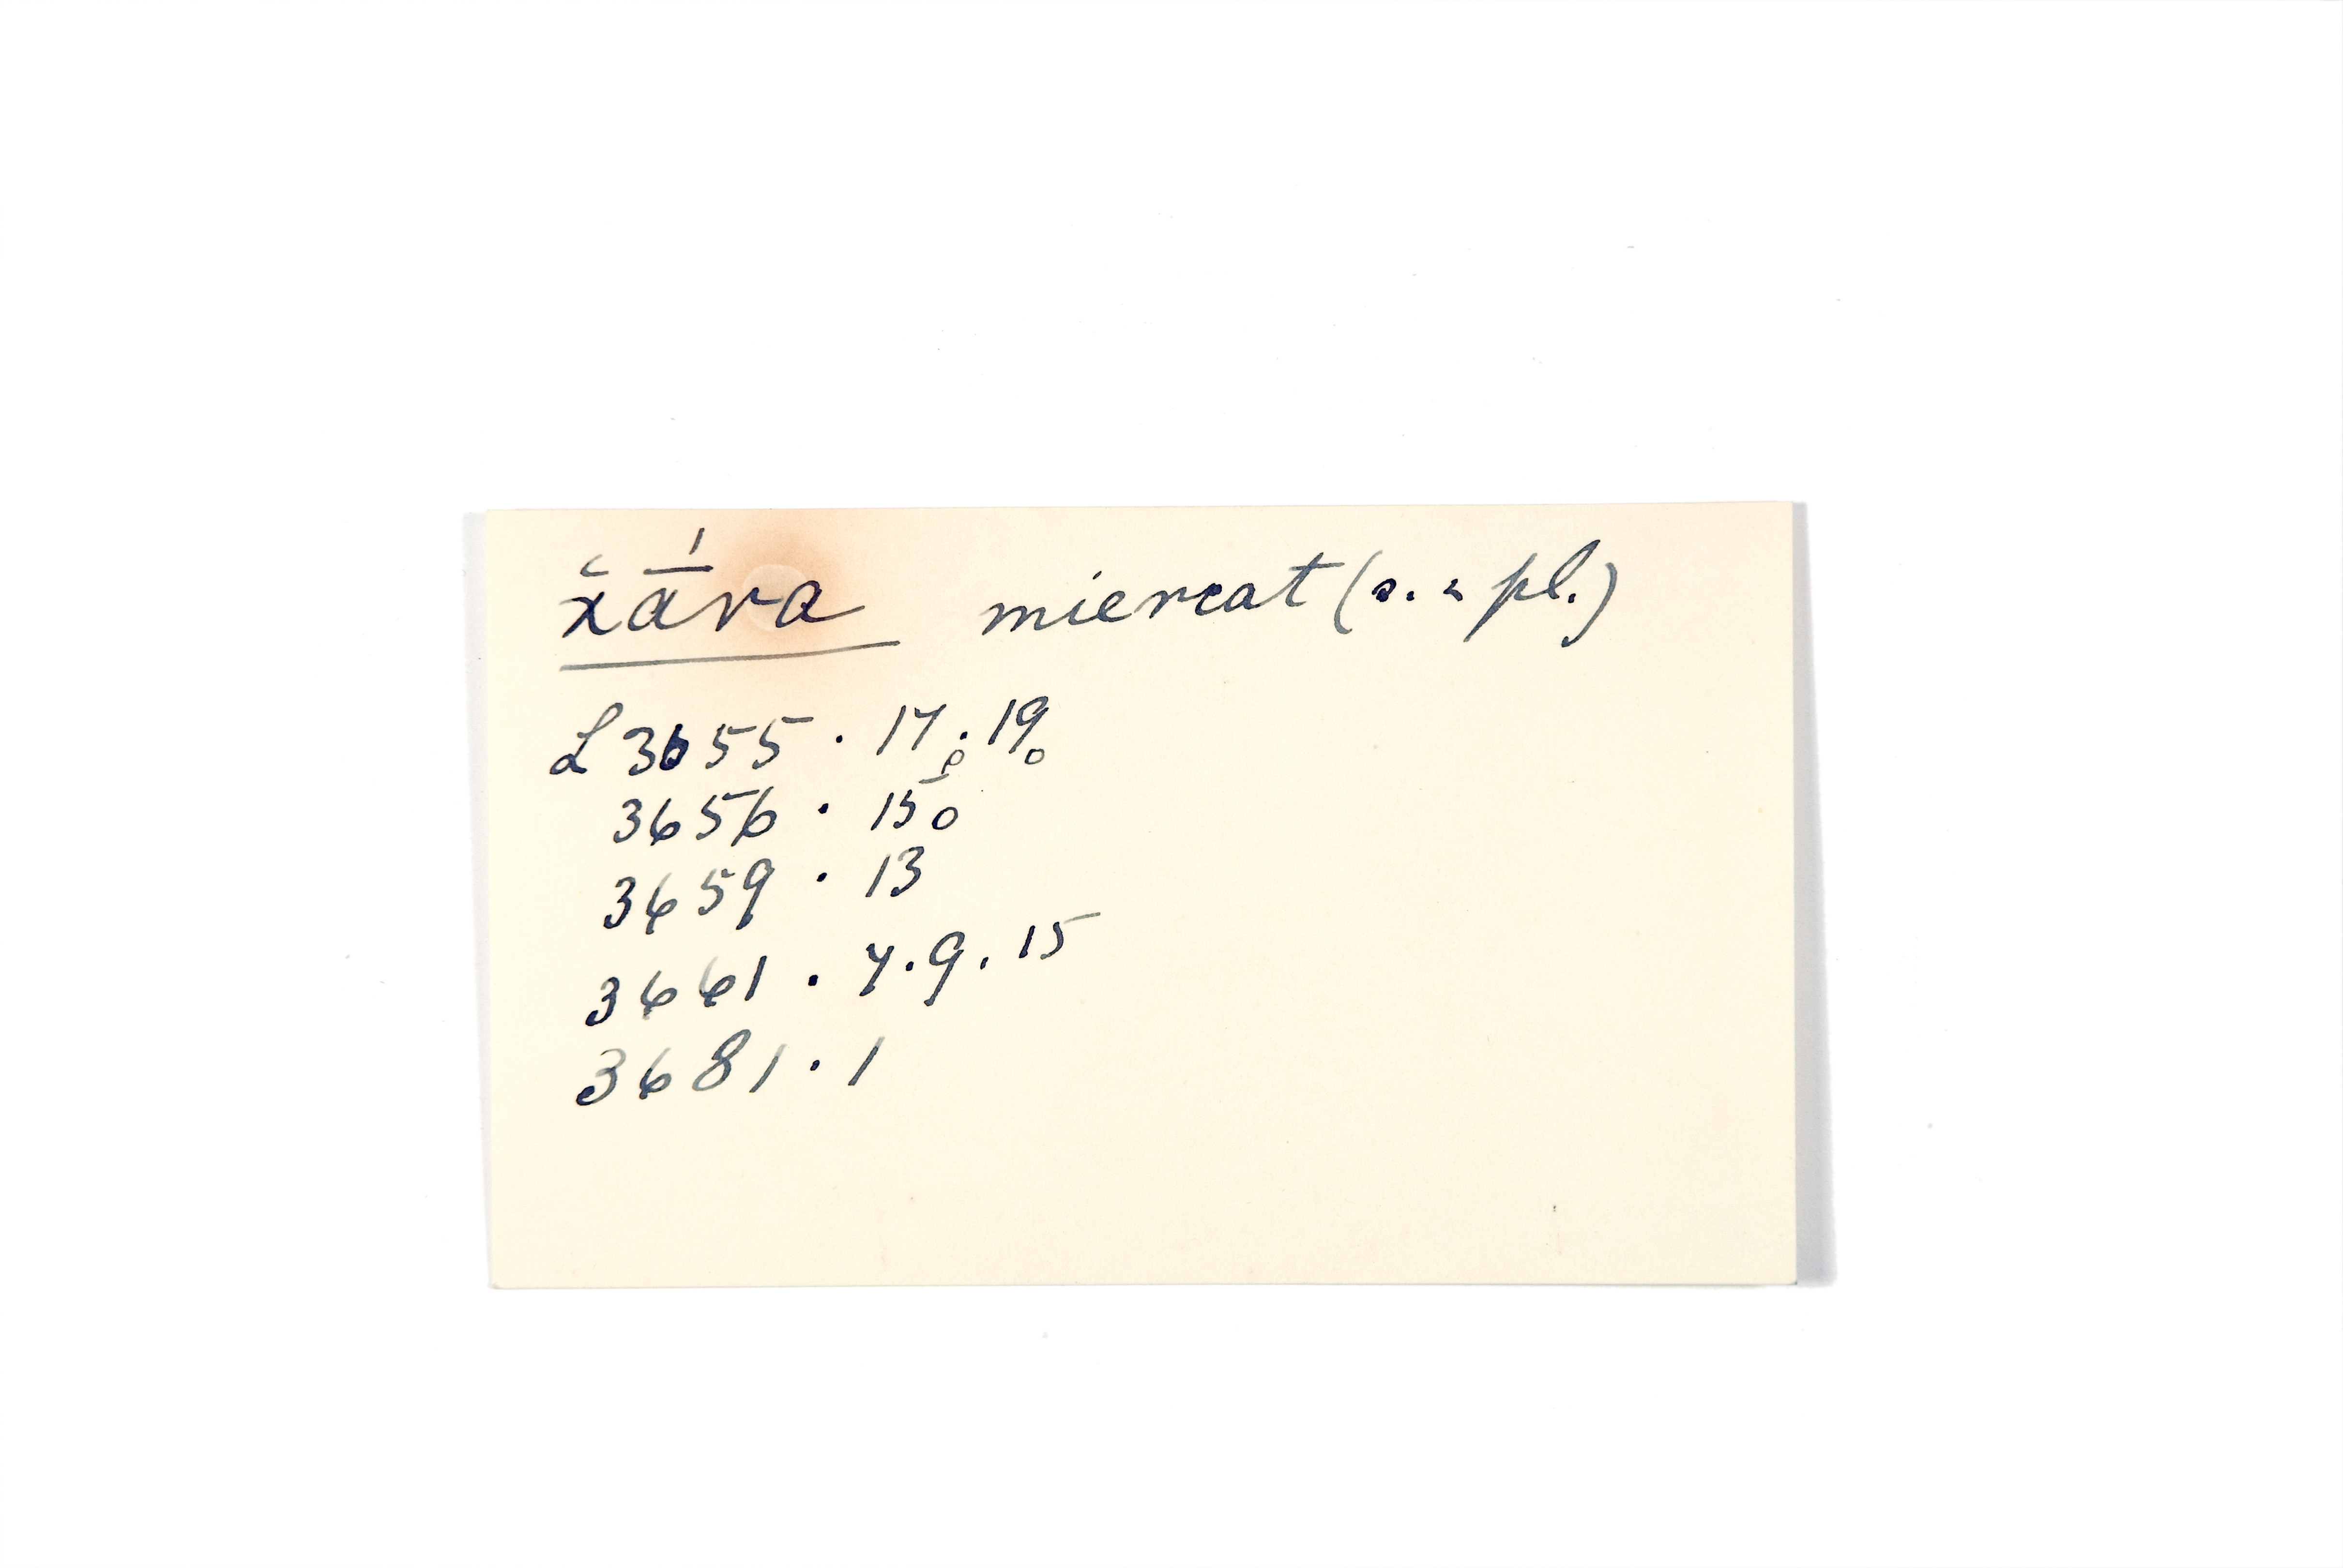 x̆ā́ra miercat (s. & pl.)
L 3655 . 17o . 19o
3656 . 15o
3659 . 13
3661 . 7 . 9 . 15
3681 . 1